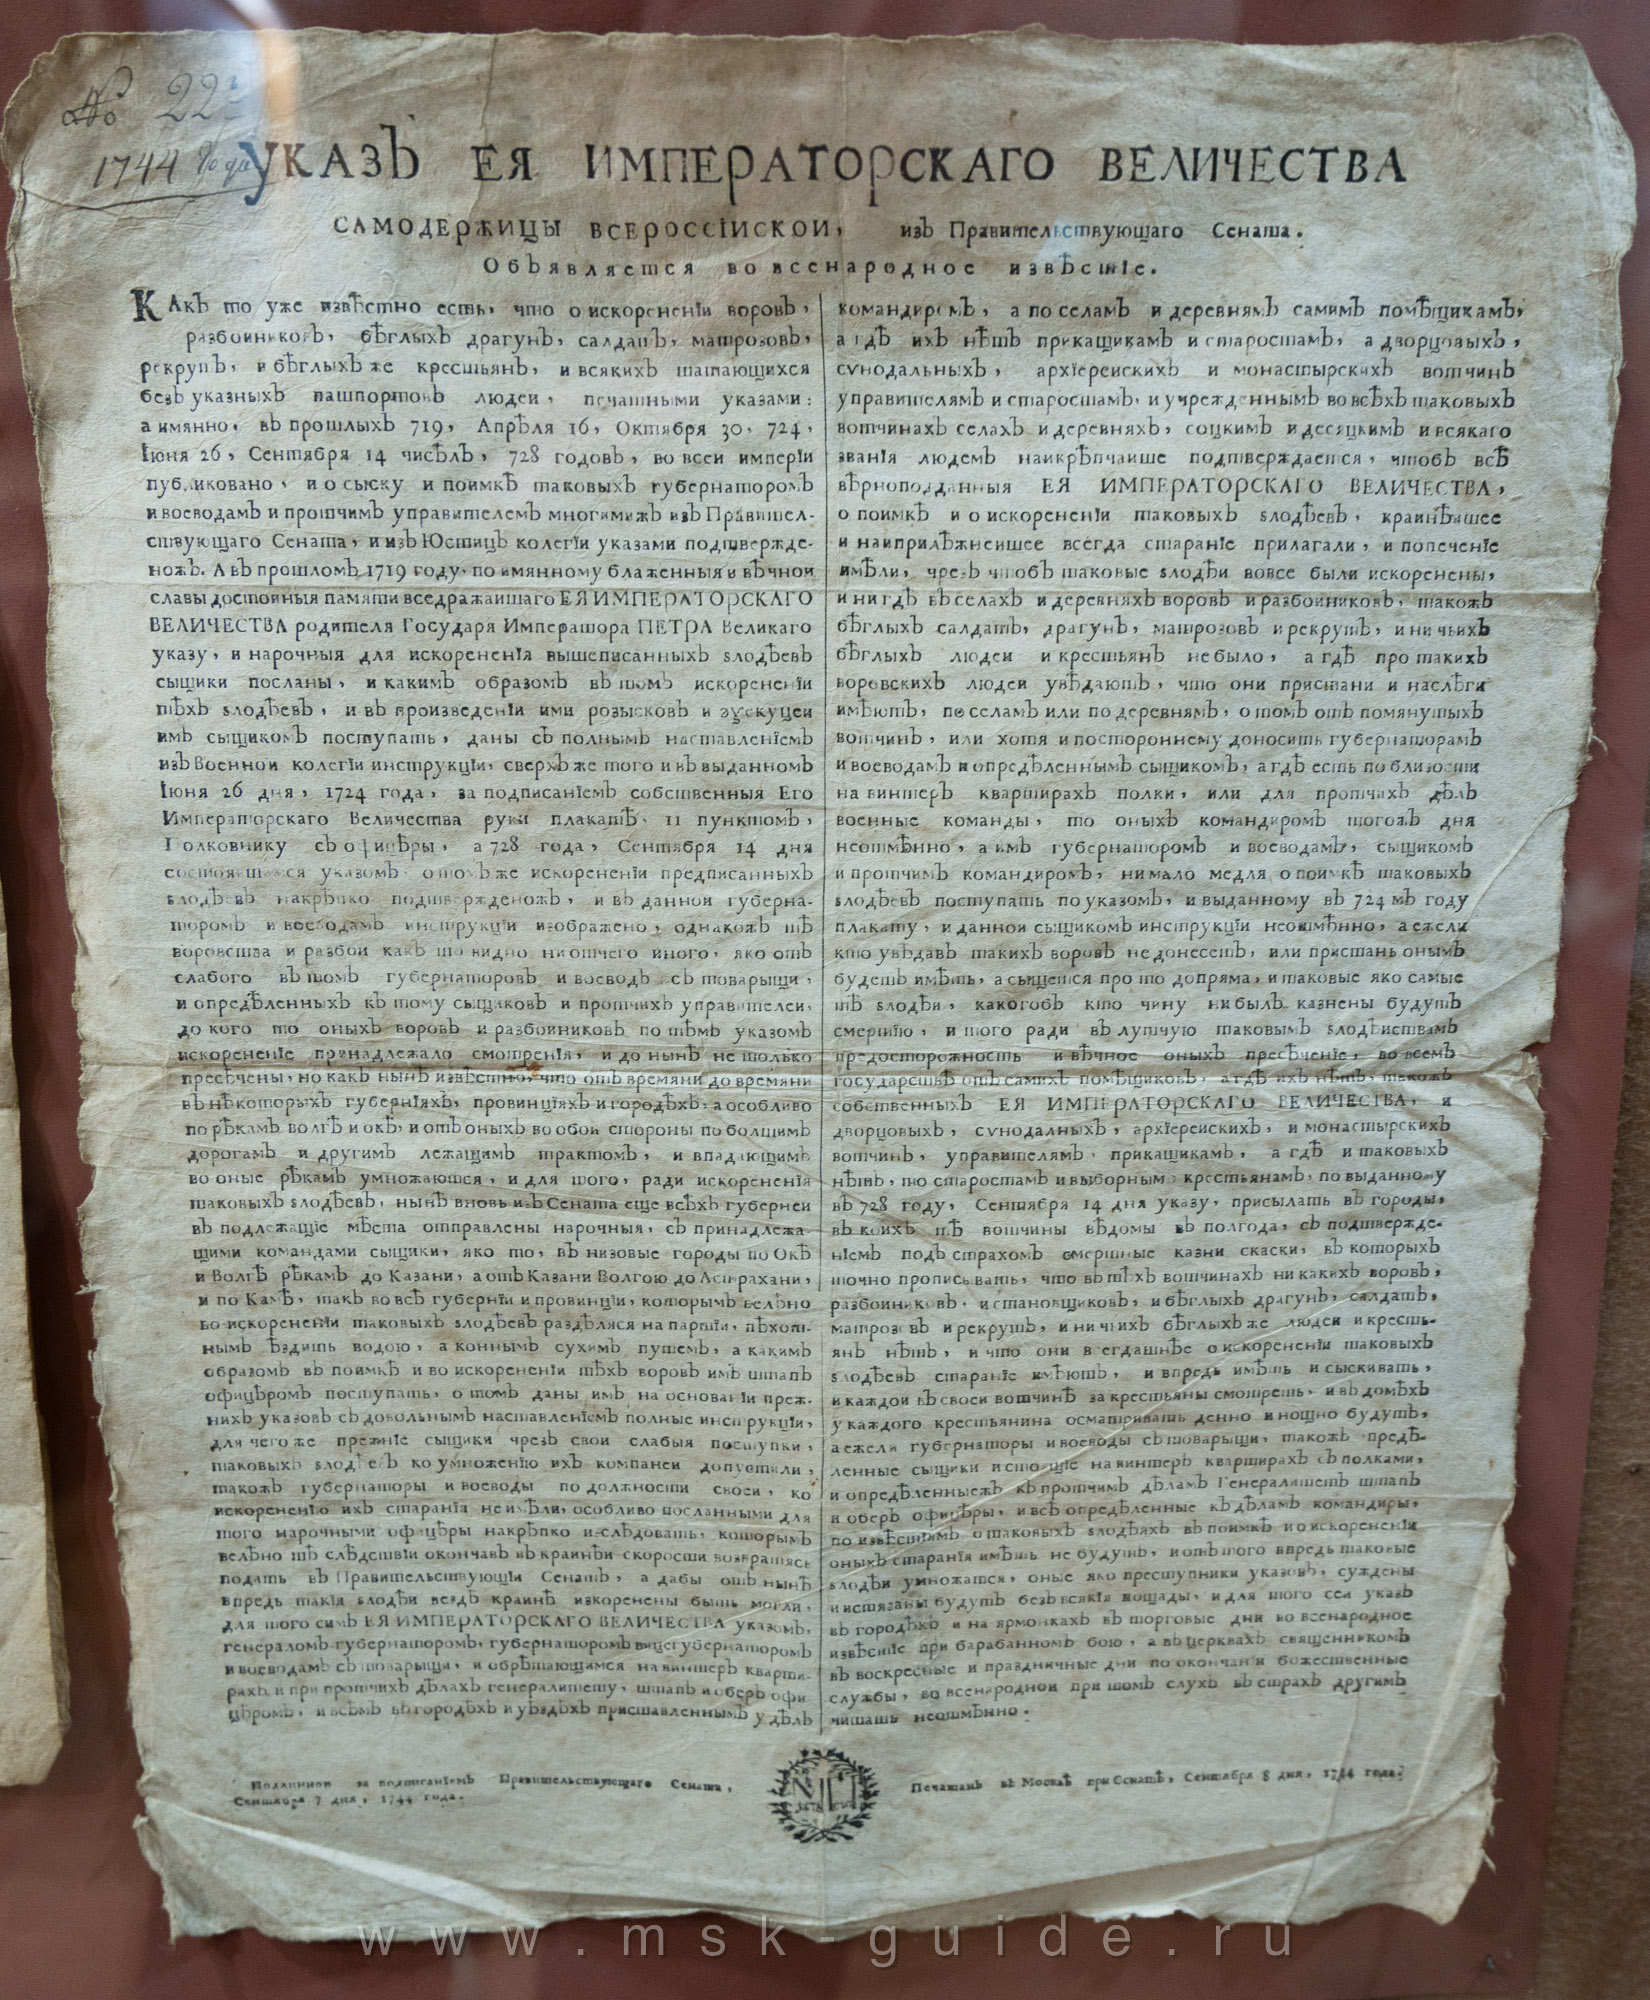 No 22
1744 года
УКАЗЪ ЕЯ ИМПЕРАТОРСКАГО ВЕЛИЧЕСТВА
САМОДЕРЖИЦЫ ВСЕРОССIИСКОИ, изЪ Правительствующаго Сената.
ОбЪявляется во всенародное извѣстiе.
КАкЪ то уже извѣстно есть, что о искорененiи воровЪ,
разбоиниковЪ, бѣглыхЪ драгунЪ, салдатЪ, матрозовЪ,
рекрутЪ, и бѣглыхЪ же крестьянЪ, и всякихЪ шатающихся
безЪ указныхЪ пашпортовЪ людеи, печатными указами:
а имянно, вЪ прошлыхЪ 719, Апрѣля 16, Октября 30, 724,
Iюня 26, Сентября 14 чиселЪ, 728 годовЪ, во всеи имперiи
публиковано, и о сыску и поимкѣ таковыхЪ губернаторомЪ
и воеводамЪ и протчимЪ управителемЪ многимижЪ изЪ Правител-
ствующаго Сената, и изЪ ЮстицЪ колегiи указами подтвержде-
ножЪ. А вЪ прошломЪ 1719 году, по имянному блаженныя и вѣчнои
славы достоиныя памяти вседражаишаго ЕЯ ИМПЕРАТОРСКАГО
ВЕЛИЧЕСТВА родителя Государя Императора ПЕТРА Великаго
указу, и нарочныя для искорененiя вышеписанныхЪ ѕлодѣевЪ
сыщики посланы, и какимЪ образомЪ вЪ томЪ искорененiи
тѣхЪ ѕлодѣевЪ, и вЪ произведенiи ими розысковЪ и эѯекуцеи
имЪ сыщикомЪ поступать, даны сЪ полнымЪ наставленiемЪ
изЪ Военнои колегiи инструкцiи, сверхЪ же того и вЪ выданномЪ
Iюня 26 дня, 1724 года, за подписанiемЪ собственныя Его
Императорскаго Величества руки плакатѣ, 11 пунктомЪ,
Полковнику сЪ офицеры, а 728 года, Сентября 14 дня
состоявшимся указомЪ о томЪ же искорененiи предписанныхЪ
ѕлодѣевЪ накрѣпко подтвержденожЪ, и вЪ даннои губерна-
торомЪ и воеводамЪ инструкцiи изображено, однакожЪ тѣ
воровства и разбои какЪ то видно ни отчего иного, яко отЪ
слабого вЪ томЪ губернаторовЪ и воеводЪ сЪ товарыщи,
и опредѣленныхЪ кЪ тому сыщиковЪ и протчихЪ управителеи,
до кого то оныхЪ воровЪ и разбоиниковЪ по тѣмЪ указомЪ
искорененiе принадлежало смотренiя, и до нынѣ не только
пресѣчены, но какЪ нынѣ извѣстно, что отЪ времяни до времяни
вЪ нѣкоторыхЪ губернiяхЪ, провинцiяхЪ и городѣхЪ, а особливо
по рѣкамЪ волгѣ и окѣ, и отЪ оныхЪ во обои стороны по болшимЪ
дорогамЪ и другимЪ лежащимЪ трактомЪ, и впадающимЪ
во оные рѣкамЪ умножаются, и для того, ради искорененiя
таковыхЪ ѕлодѣевЪ, нынѣ вновь изЪ Сената еще всѣхЪ губернеи
вЪ подлежащiе мѣста отправлены нарочныя, сЪ принадлежа-
щими командами сыщики, яко то, вЪ низовые городы по Окѣ
и Волгѣ рѣкамЪ до Казани, а отЪ Казани Волгою до Астрахани,
и по Камѣ, такЪ во всѣ губернiи и провинцiи, которымЪ велѣно
во искорененiи таковыхЪ ѕлодѣевЪ раздѣляся на партiи, пѣхот-
нымЪ ѣздить водою, а коннымЪ сухимЪ путемЪ, а какимЪ
образомЪ вЪ поимкѣ и во искорененiи тѣхЪ воровЪ имЪ штапЪ
офицѣромЪ поступать, о томЪ даны имЪ на основанiи преж-
нихЪ указовЪ сЪ довольнымЪ наставленiемЪ полные инструкцiи,
для чего же прежнiе сыщики чрезЪ свои слабыя поступки,
таковыхЪ ѕлодѣевЪ ко умноженiю ихЪ компанеи допустили,
такожЪ губернаторы и воеводы по должности своеи, ко
искорененiю ихЪ старанiя не имѣли, особливо посланными для
того нарочными офицѣры накрѣпко изслѣдовать, которымЪ
велѣно тѣ слѣдствiи окончавЪ вЪ краинѣи скорости возвратясь
подать вЪ Правительствующiи СенатЪ, а дабы отЪ нынѣ
впредь такiя ѕлодѣи вездѣ краинѣ изкоренены быть могли,
для того симЪ ЕЯ ИМПЕРАТОРСКАГО ВЕЛИЧЕСТВА указомЪ,
генераломЪ губернаторомЪ, губернаторомЪ вицегубернаторомЪ
и воеводамЪ сЪ товарыщи, и обрѣтающимся на винтерЪ кварти-
рахЪ и при протчихЪ дѣлахЪ генералитету, штапЪ и оберЪ офи-
цѣромЪ, и всѣмЪ вЪ городѣхЪ и уѣздѣхЪ приставленнымЪ у дѣлЪ
командиромЪ, а по селамЪ и деревнямЪ самимЪ помѣщикамЪ,
а гдѣ ихЪ нѣтЪ прикащикамЪ и старостамЪ, а дворцовыхЪ,
сѵнодальныхЪ, архiереискихЪ и монастырскихЪ вотчинЪ
управителямЪ и старостамЪ, и учрежденнымЪ во всѣхЪ таковыхЪ
вотчинахЪ селахЪ и деревняхЪ, соцкимЪ и десяцкимЪ и всякаго
званiя людемЪ наикрѣпчаише подтверждается, чтобЪ всѣ
вѣрноподданныя ЕЯ ИМПЕРАТОРСКАГО ВЕЛИЧЕСТВА,
о поимкѣ и о искорененiи таковыхЪ ѕлодѣевЪ, краинѣишее
и наиприлѣжнеишее всегда старанiе прилагали, и попеченiе
имѣли, чрезЪ чтобЪ таковые ѕлодѣи вовсе были искоренены,
и ни гдѣ вЪ селахЪ и деревняхЪ воровЪ и разбоиниковЪ, такожЪ
бѣглыхЪ салдатЪ, драгунЪ, матрозовЪ и рекрутЪ, и ни чьихЪ
бѣглыхЪ людеи и крестьянЪ не было, а гдѣ про такихЪ
воровскихЪ людеи увѣдаютЪ, что они пристани и наслѣги
имѣютЪ, по селамЪ или по деревнямЪ, о томЪ отЪ помянутыхЪ
вотчинЪ, или хотя и постороннему доносить губернаторамЪ
и воеводамЪ и опредѣленнымЪ сыщикомЪ, а гдѣ есть по близости
на винтерЪ квартирахЪ полки, или для протчихЪ дѣлЪ
военные команды, то оныхЪ командиромЪ тогожЪ дня
неотмѣнно, а имЪ губернаторомЪ и воеводамЪ, сыщикомЪ
и протчимЪ командиромЪ, ни мало медля, о поимкѣ таковыхЪ
ѕлодѣевЪ поступать по указомЪ, и выданному вЪ 724 мЪ году
плакату, и даннои сыщикомЪ инструкцiи неотмѣнно, а ежели
кто увѣдавЪ такихЪ воровЪ не донесетЪ, или пристань онымЪ
будетЪ имѣть, а сыщется про то допряма, и таковые яко самые
тѣ ѕлодѣи, какогобЪ кто чину ни былЪ казнены будутЪ
смертiю, и того ради вЪ лутчую таковымЪ ѕлодѣиствамЪ
предосторожность и вѣчное оныхЪ пресѣченiе, во всемЪ
государствѣ отЪ самихЪ помѣщиковЪ, а гдѣ ихЪ нѣтЪ, такожЪ
собственныхЪ ЕЯ ИМПЕРАТОРСКАГО ВЕЛИЧЕСТВА, и
дворцовыхЪ, сѵнодалныхЪ, архiереискихЪ, и монастырскихЪ
вотчинЪ, управителямЪ, прикащикамЪ, а гдѣ и таковыхЪ
нѣтЪ, то старостамЪ и выборнымЪ крестьянамЪ, по выданному
вЪ 728 году, Сентября 14 дня указу, присылать вЪ городы,
вЪ коихЪ тѣ вотчины вѣдомы вЪ полгода, сЪ подтвержде-
нiемЪ подЪ страхомЪ смертные казни скаски, вЪ которыхЪ
точно прописывать, что вЪ тѣхЪ вотчинахЪ ни какихЪ воровЪ,
разбоиниковЪ, и становщиковЪ, и бѣглыхЪ драгунЪ, салдатЪ,
матрозовЪ и рекрутЪ, и ни чьихЪ бѣглыхЪ же людеи и кресть-
янЪ нѣтЪ, и что они всегдашнѣе о искорененiи таковыхЪ
ѕлодѣевЪ старанiе имѣютЪ, и впредь имѣть и сыскивать,
и каждои вЪ своеи вотчинѣ за крестьяны смотреть, и вЪ домѣхЪ
у каждого крестьянина осматривать денно и нощно будутЪ,
а ежели губернаторы и воеводы сЪ товарыщи, такожЪ предѣ-
ленные сыщики и стоящiе на винтерЪ квартирахЪ сЪ полками,
и опредѣленныежЪ кЪ протчимЪ дѣламЪ ГенералитетЪ штапЪ
и оберЪ офицѣры, и всѣ опредѣленные кЪ дѣламЪ командиры,
по извѣстiямЪ о таковыхЪ ѕлодѣяхЪ вЪ поимкѣ и о искорененiи
оныхЪ старанiя имѣть не будутЪ, и отЪ того впредь таковые
ѕлодѣи умножатся, оные яко преступники указовЪ, суждены
и истязаны будутЪ безЪ всякiя пощады, и для того сеи указЪ
вЪ городѣхЪ и на ярмонкахЪ вЪ торговые дни во всенародное
извѣстiе при барабанномЪ бою, а вЪ церквахЪ священникомЪ
вЪ воскресные и праздничные дни по окончанiи божественные
службы, во всенароднои при томЪ слухЪ вЪ страхЪ другимЪ
читать неотмѣнно.
Подлиннои за подписанiемЪ Правительствующаго Сената,
Сентября 7 дня, 1744 года.
ПечатанЪ вЪ Москвѣ при Сенатѣ, Сентября 8 дня, 1744 года.
www.msk-guide.ru